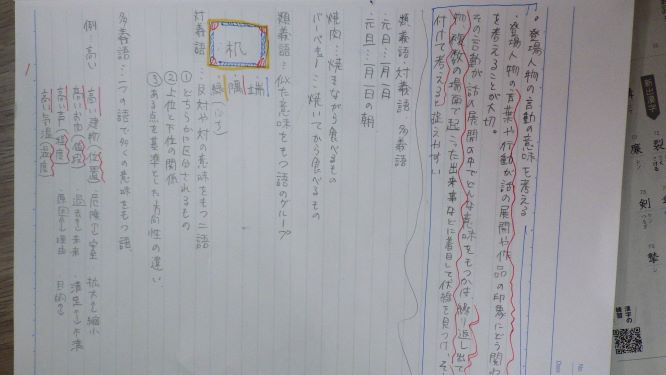 新出漢字
裂
廉
剣
摯
漢字の練習
。登場人物の言動の意味を考える
・登場人物の言葉や行動が話の展開や作品の印象にどう関わ
を考えることが大切。
その言動が話の展開の中でどんな意味をもつかは、繰り返し出て
物、複数の場面で起こった出来事などに着目して伏線を見つけ、そ
付けて考えると捉えやすい
類義語 対義語 多義語
元日…一月一日
元旦…一月一日の朝
焼肉…焼きながら食べるもの
バーベキュー…焼いてから食べるもの
類義語…似た意味をもつ語のグループ
机
端
隅
縁
対義語…反対や対の意味をもつ二語
①どちらかに区分されるもの
②上位と下位の関係
③ある点を基準とした方向性の違い
多義語…一つの語で多くの意味をもつ語
例 高い
高い建物(位置)
高いお肉(値段)
高い声(程度)
高い気温(温度)
危険↔安全 拡大↔縮小
過去↔未来 満足↔不満
原因↔理由 目的